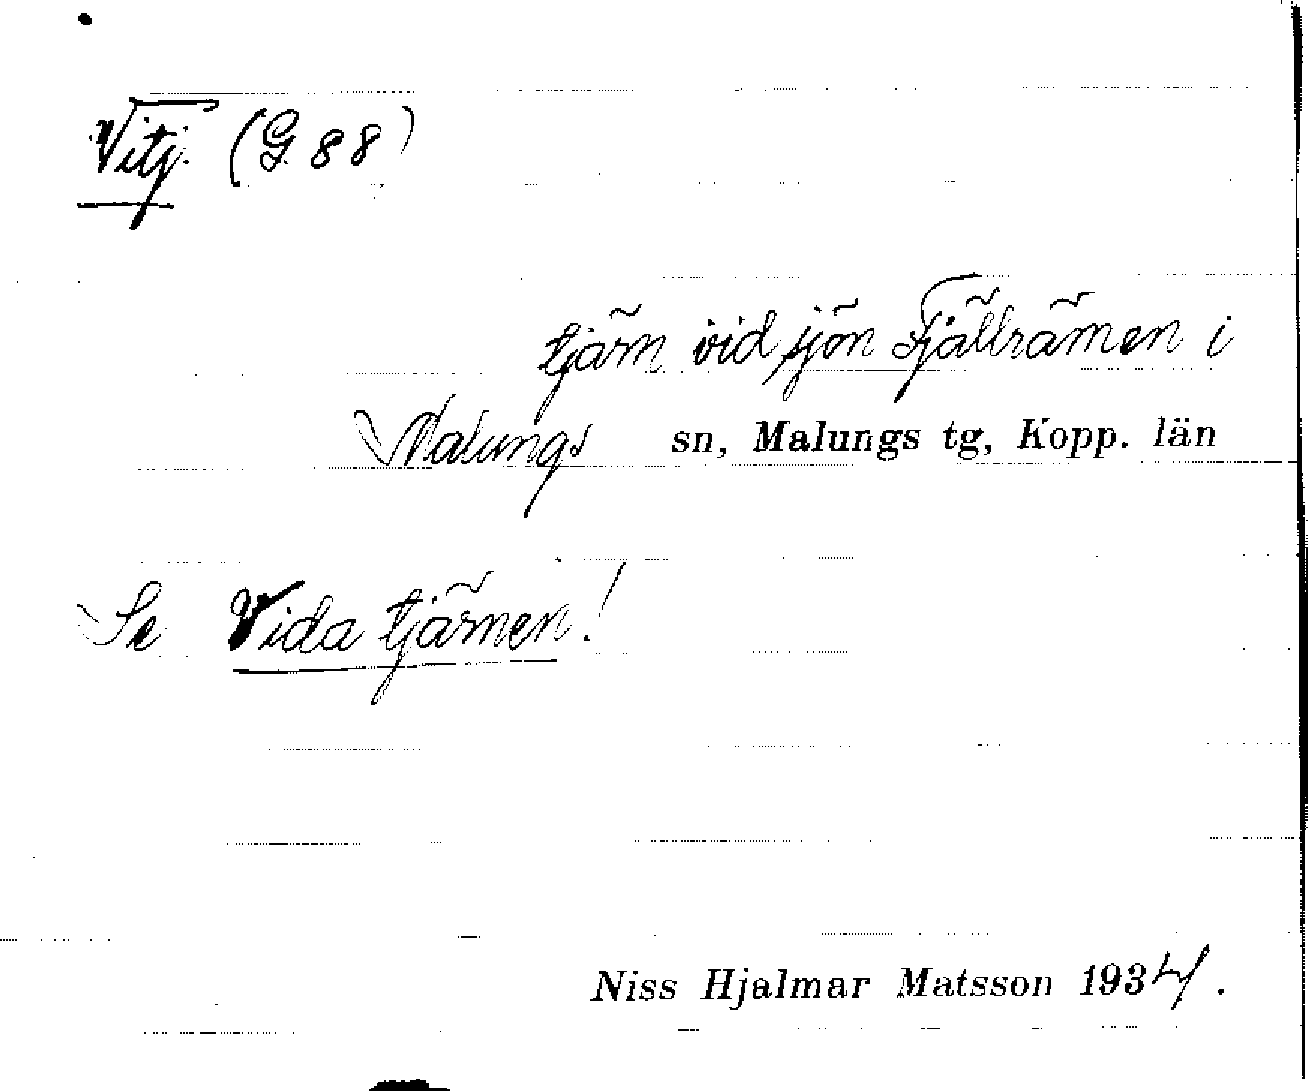 Vitj. (G. 88)
tjärn vid sjön Fjällrämen i
Malungs sn, Malungs tg, Kopp. län
Se Vida tjärnen!
Niss Hjalmar Matsson 1934.